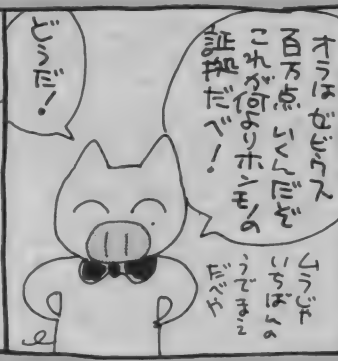 オラはゼビウス
百万点いくんだぞ
これが何よりホンモノの
証拠だべ!
ムラじゃ
いちばんの
うでまえ
だべや
どうだ!